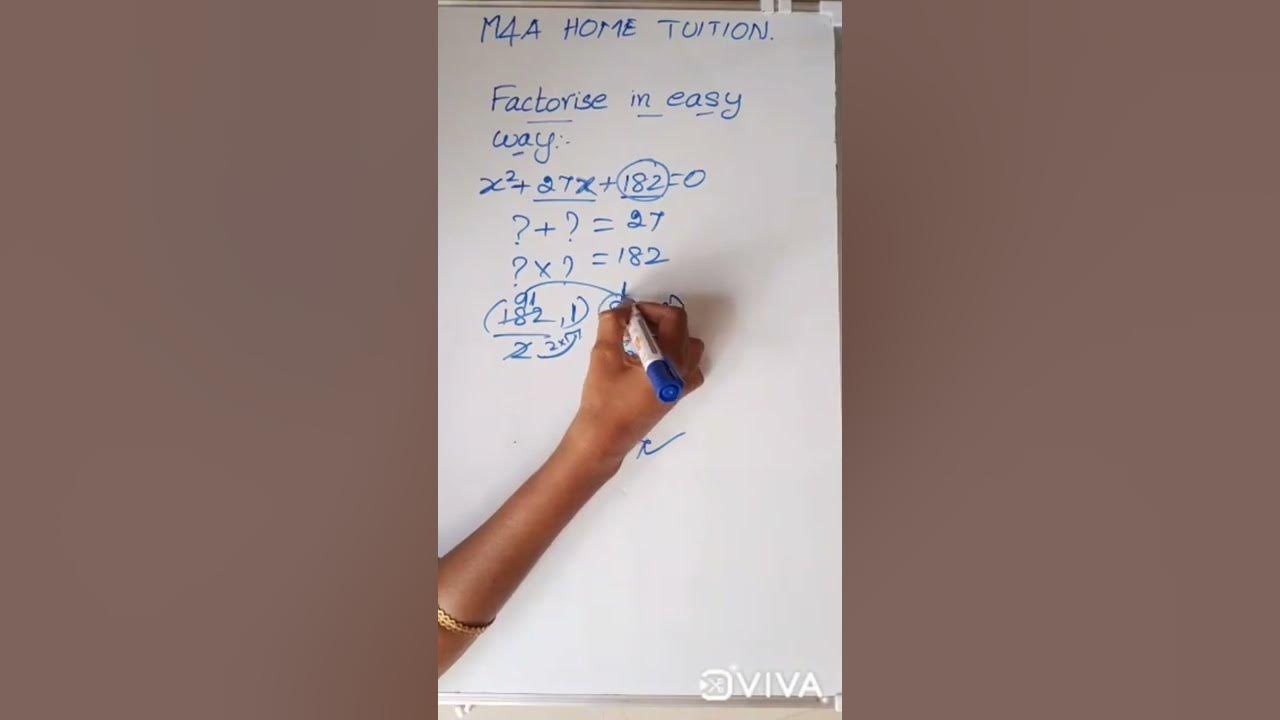 M4A HOME TUITION.
Factorise in easy
way:-
x² + 27x + 182 = 0
? + ? = 27
? x ? = 182
91
(182, 1)
2 2x1
VIVA